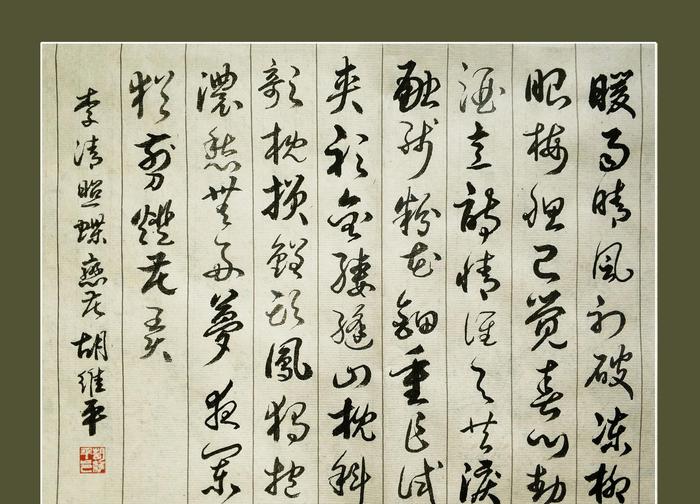 暖雨晴風初破凍柳
眼梅腮已觉春心動
酒意詩情谁与共淚
融残粉花鈿重乍试
夾衫金縷縫山枕斜
欹枕損釵头鳳獨抱
濃愁無好夢夜闌
猶剪燈花弄
李清照蝶戀花胡維平